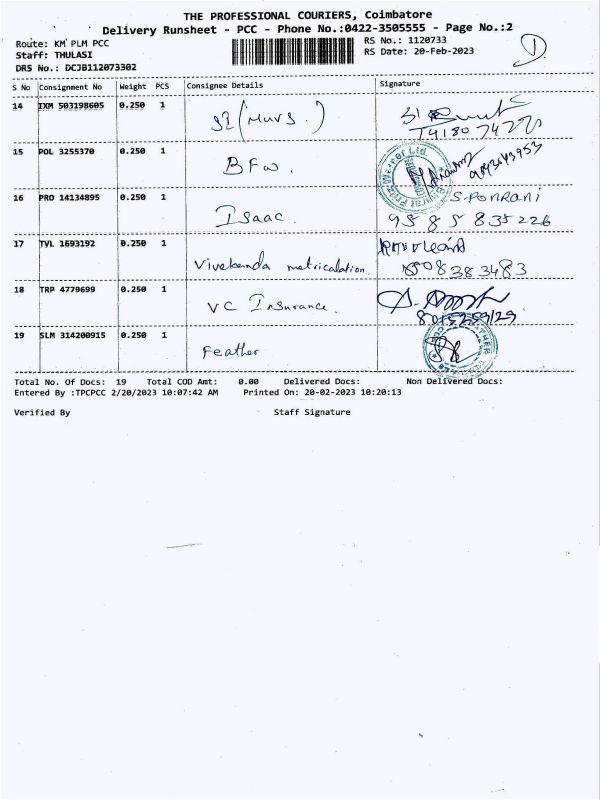 THE PROFESSIONAL COURIERS, Coimbatore
Delivery Runsheet - PCC - Phone No.:0422-3505555 - Page No.:2
Route: KM PLM PCC
Staff: THULASI
DRS No.: DCJB112073302
RS No.: 1120733
RS Date: 20-Feb-2023
S No Consignment No Weight PCS Consignee Details Signature
14 IXM 503198605 0.250 1
15 POL 3255370 0.250 1 BFW.
16 PRO 14134895 0.250 1 Isaac. S. PONRANI
95 8 5 8 35 226
17 TVL 1693192 0.250 1 Vivekanda matriculation.
18 TRP 4779699 0.250 1 VC Insurance.
8015259129
19 SLM 314200915 0.250 1 Feather
Total No. Of Docs: 19 Total COD Amt: 0.00 Delivered Docs: Non Delivered Docs:
Entered By :TPCPCC 2/20/2023 10:07:42 AM Printed On: 20-02-2023 10:20:13
Verified By Staff Signature